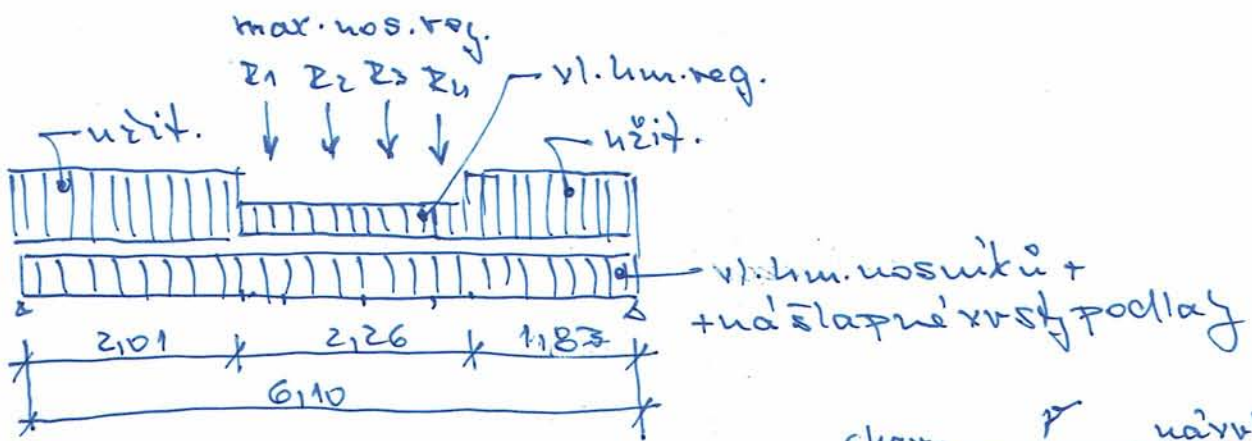 max. nos. reg.
Z1 Z2 Z3 Z4
vl. hm. reg.
užit.
užit.
vl. hm. nosníků +
+ nášlapné vrstvy podlahy
2,01 2,26 1,83
6,10
char. návrh